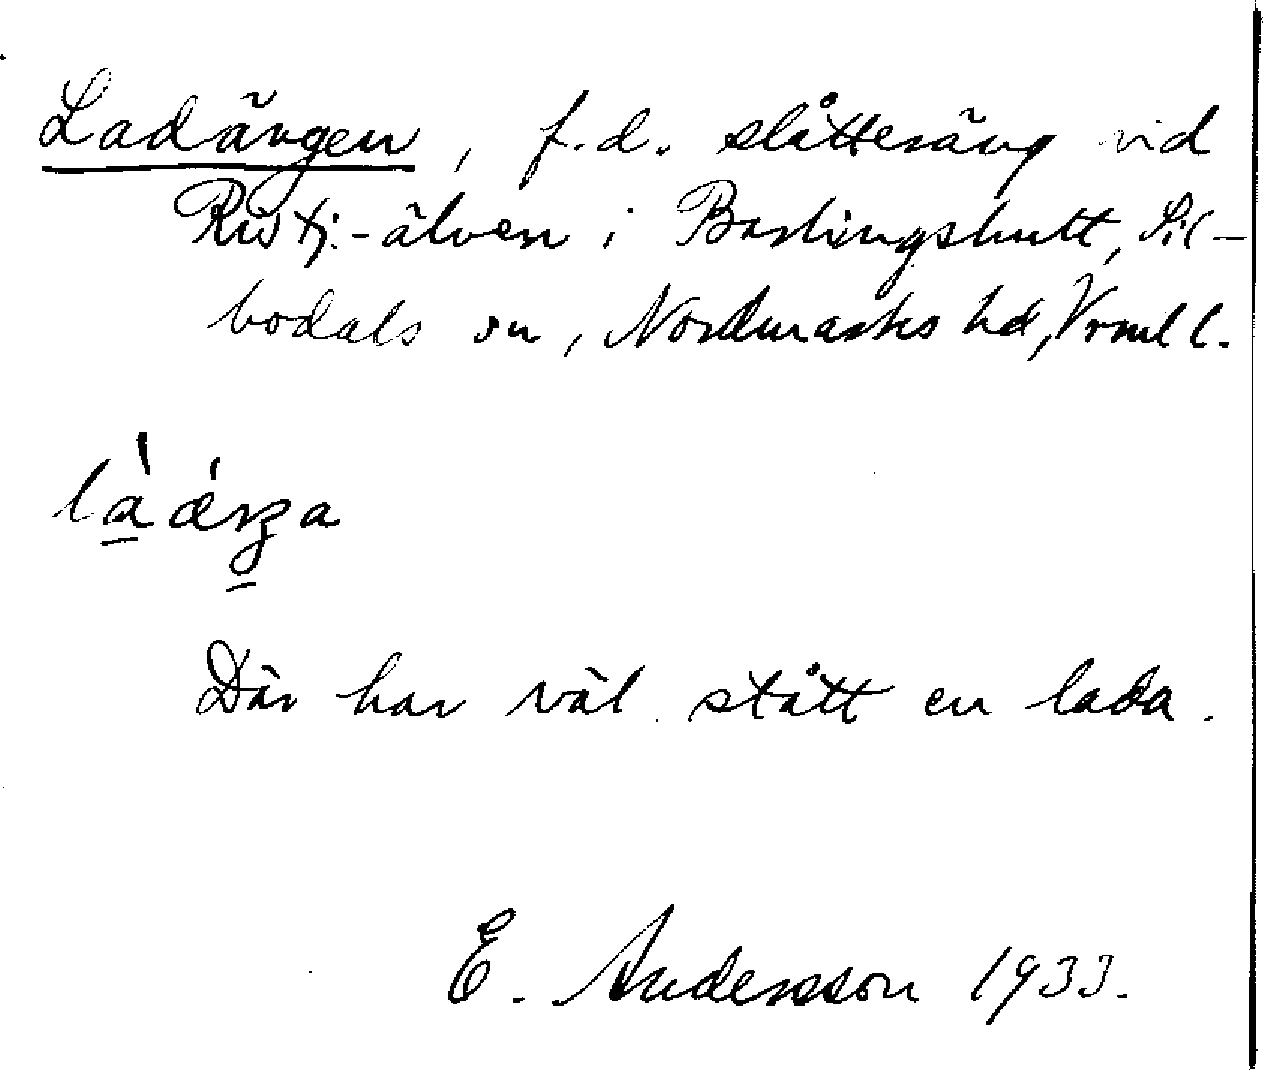 Ladängen, f.d. slåtteräng vid
Ristj.-älven i Bastingshult, Sil-
bodals sn, Nordmarks hd, Vrml l.
Där har väl stått en lada.
E. Andersson 1933.